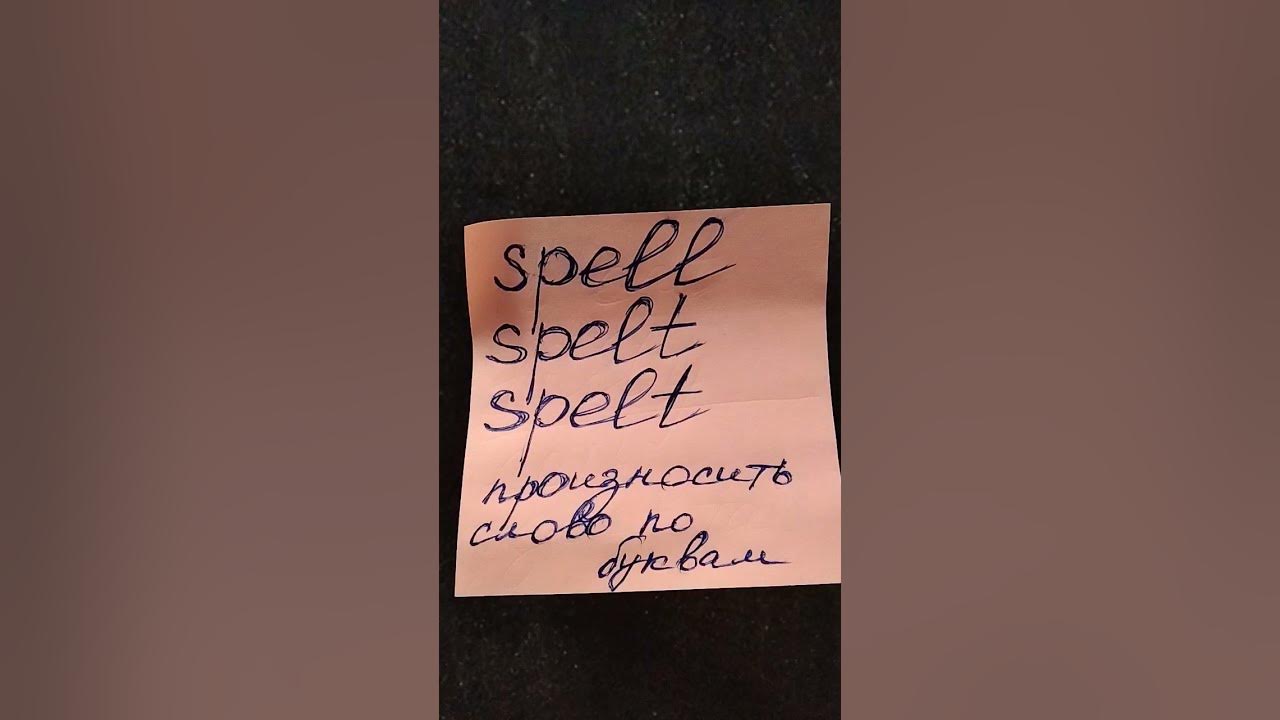 spell
spelt
spelt
произносить
слово по
буквам